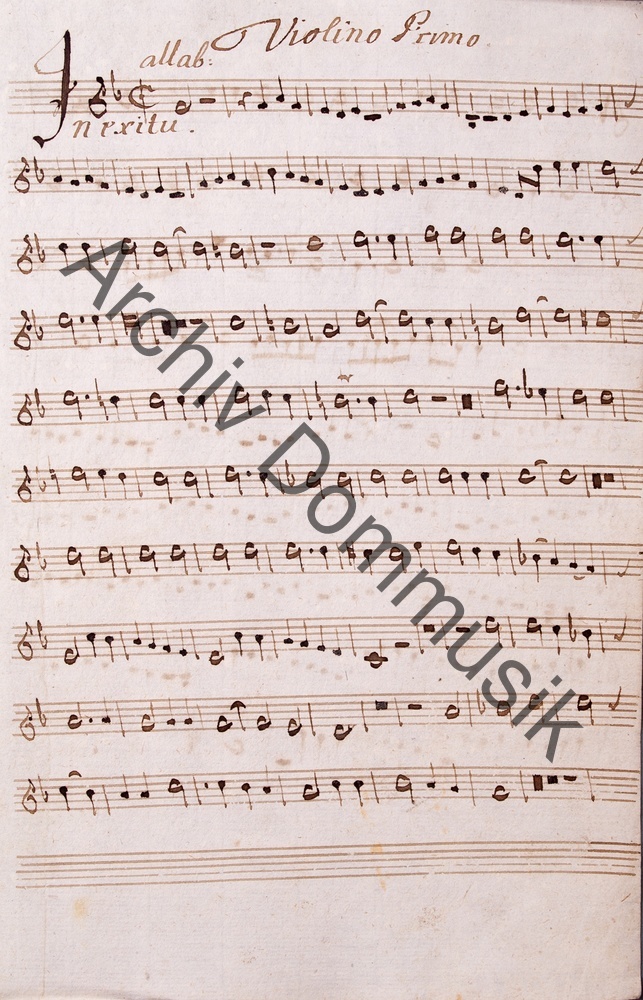 Violino Primo
allab:
In exitu.
Archiv Dommusik